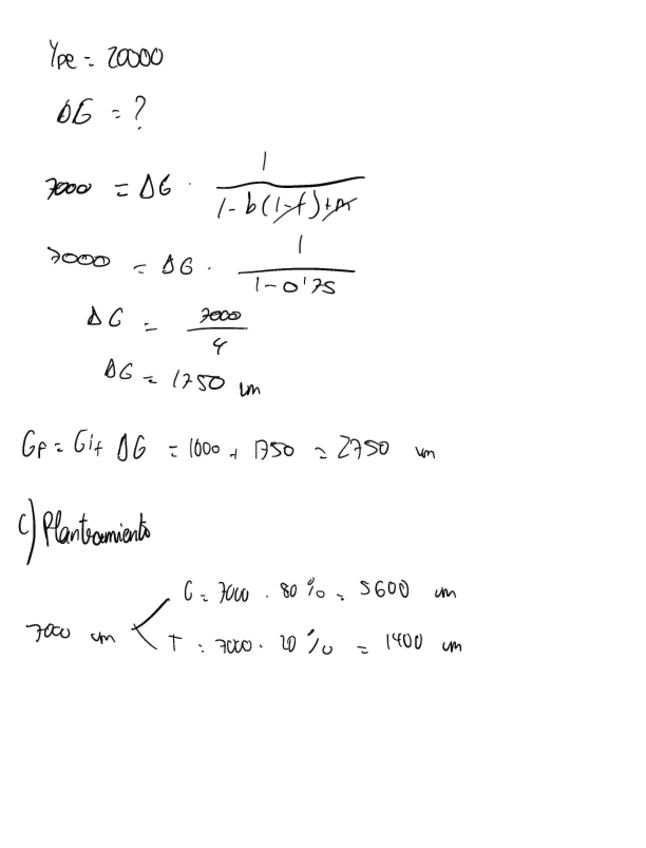 Ype = 20000
ΔG = ?
7000 = ΔG · 1 / 1 - b(1-t)+m
7000 = ΔG · 1 / 1-0'75
ΔG = 7000 / 4
ΔG = 1750 um
GF = Gi+ ΔG = 1000 + 1750 = 2750 um
C) Planteamiento
C = 7000 · 80% = 5600 um
7000 um
T = 7000 · 20% = 1400 um